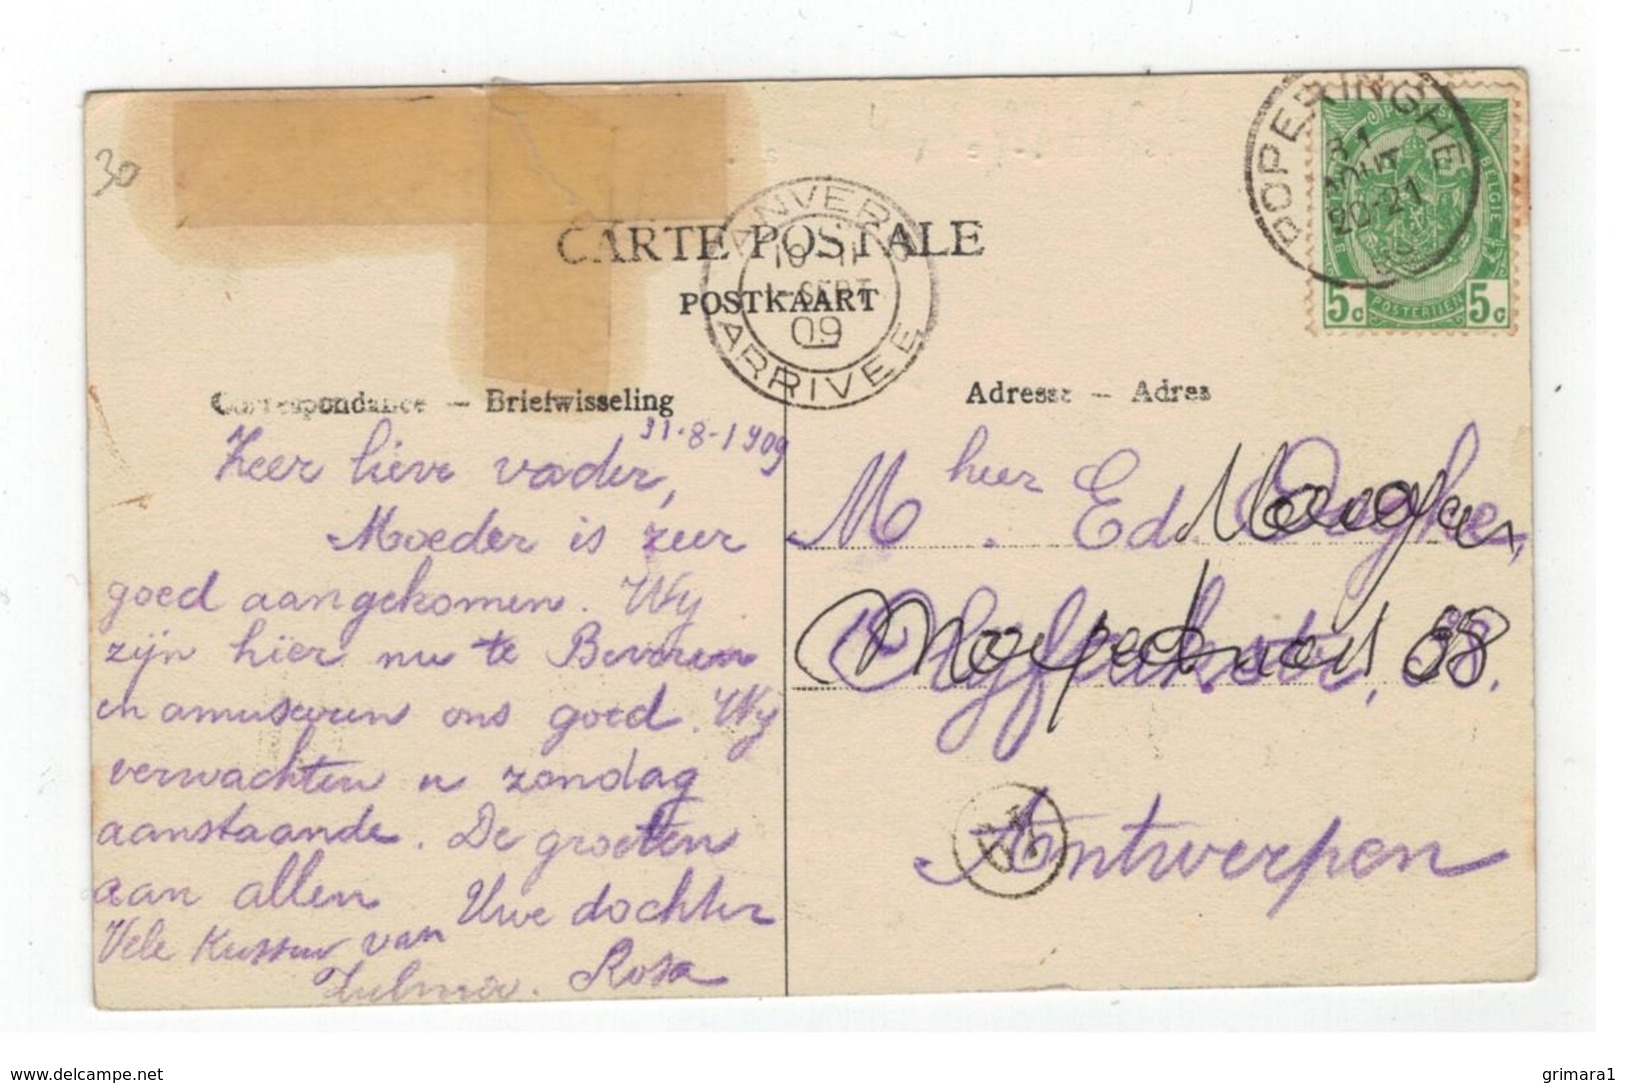 30
CARTE POSTALE
POSTKAART
ANVERS
10-11
1-SEPT
09
ARRIVEE
POPERINGHE
31
AOUT
20-21
BELGIE
5c POSTERIJEN 5c
Correspondance — Briefwisseling
Adresse — Adres
31-8-1909
Zeer lieve vader,
Moeder is zeer
goed aangekomen. Wy
zijn hier nu te Beveren
en amuseeren ons goed. Wy
verwachten u zondag
aanstaande. De groeten
aan allen Uwe dochter
Vele Kussen van Rosa
Zulma.
Mheer Ed.
58.
Antwerpen
delcampe.net
grimara1